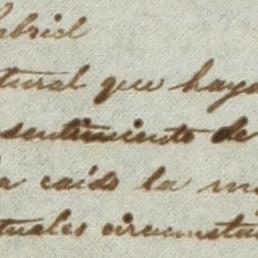 abriel
tural que haya
sentimiento de
a caido la m
tuales circunsta